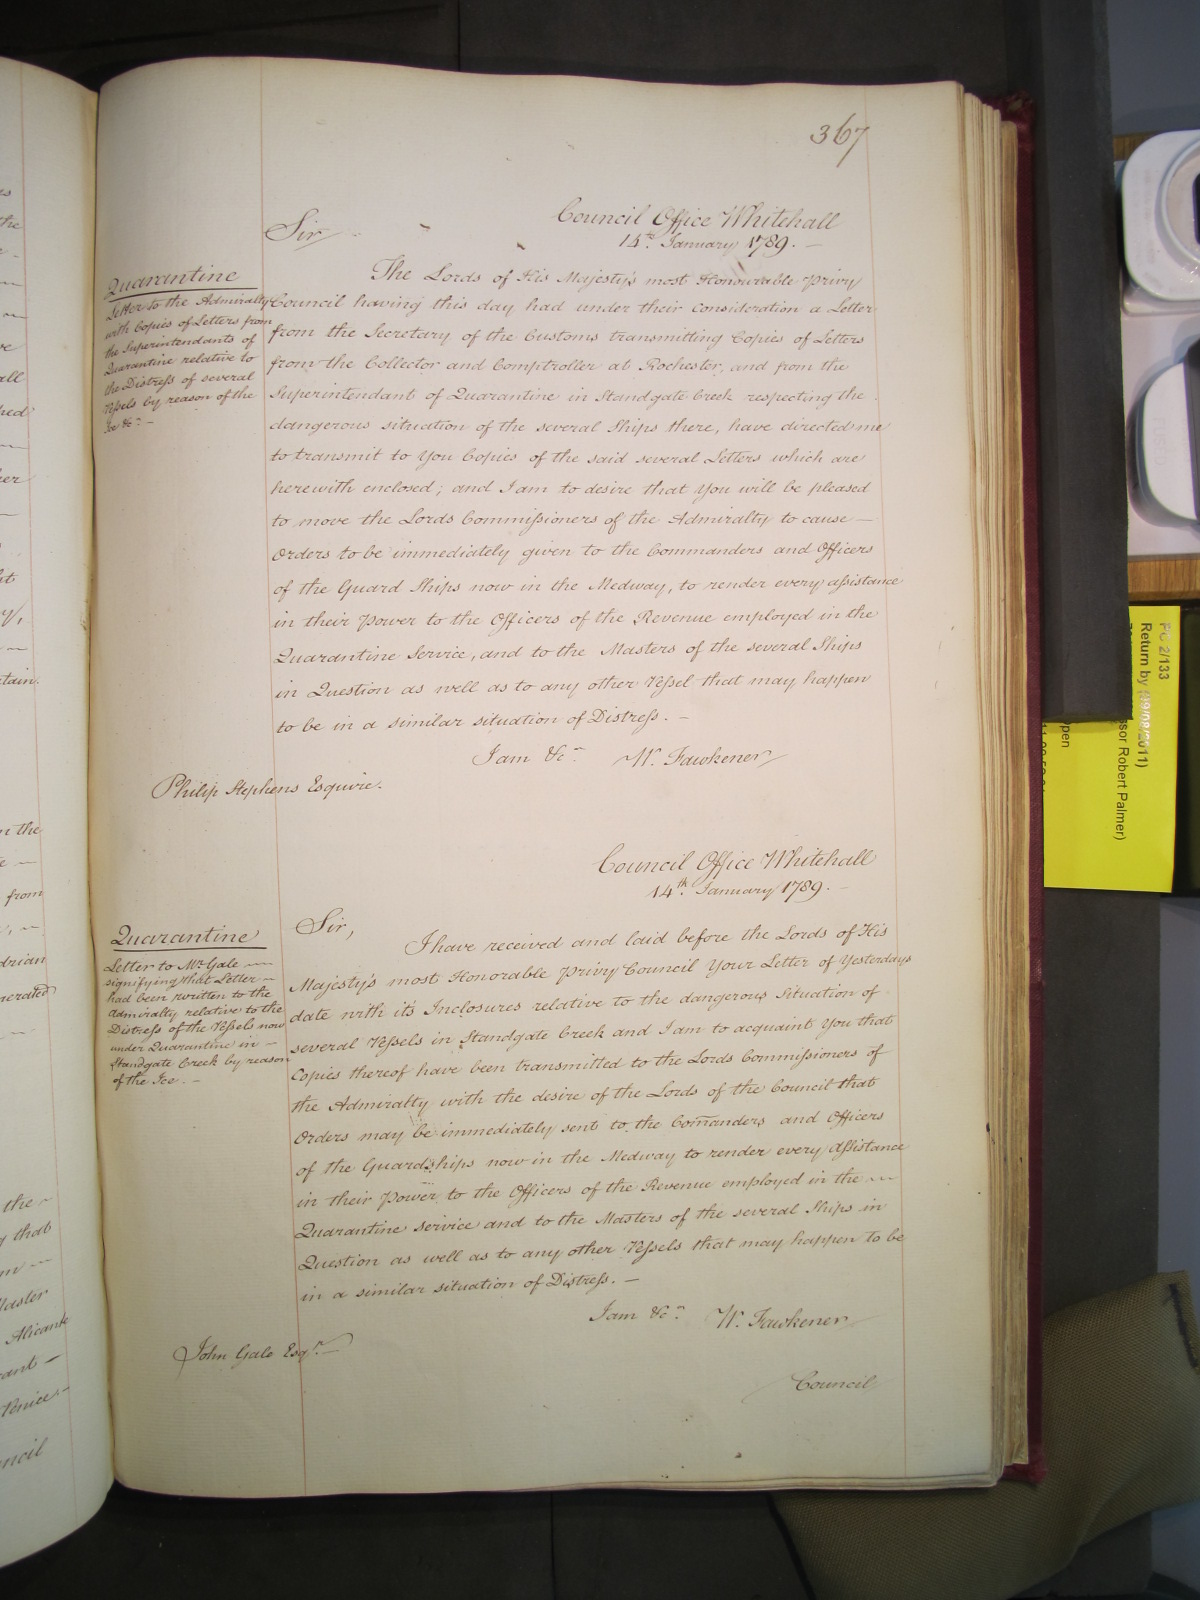 367
Council Office Whitehall
14th January 1789. —
Sir
Quarantine
Letter to the Admiralty
with Copies of Letters from
the Superintendants of
Quarantine relative to
the Distress of several
Vessels by reason of the
Ice &c. —
The Lords of His Majesty's most Honourable Privy
Council having this day had under their Consideration a Letter
from the Secretary of the Customs transmitting Copies of Letters
from the Collector and Comptroller at Rochester, and from the
Superintendant of Quarantine in Standgate Creek respecting the
dangerous situation of the several Ships there, have directed me
to transmit to You Copies of the said several Letters which are
herewith enclosed; and I am to desire that You will be pleased
to move the Lords Commissioners of the Admiralty to cause —
Orders to be immediately given to the Commanders and Officers
of the Guard Ships now in the Medway, to render every assistance
in their Power to the Officers of the Revenue employed in the
Quarantine Service, and to the Masters of the several Ships
in Question as well as to any other Vessel that may happen
to be in a similar situation of Distress. —
I am &c. W. Fawkener
Philip Stephens Esquire.
Council Office Whitehall
14th January 1789. —
Sir,
Quarantine
Letter to Mr. Gale —
signifying that Letter —
had been written to the
Admiralty relative to the
Distress of the Vessels now
under Quarantine in —
Standgate Creek by reason
of the Ice. —
I have received and laid before the Lords of His
Majesty's most Honorable Privy Council Your Letter of Yesterdays
date with it's Inclosures relative to the dangerous Situation of
several Vessels in Standgate Creek and I am to acquaint You that
Copies thereof have been transmitted to the Lords Commissioners of
the Admiralty with the desire of the Lords of the Council that
Orders may be immediately sent to the Com̄anders and Officers
of the Guardships now in the Medway to render every Assistance
in their Power to the Officers of the Revenue employed in the —
Quarantine service and to the Masters of the several Ships in
Question as well as to any other Vessels that may happen to be
in a similar situation of Distress. —
I am &c. W. Fawkener
John Gale Esqr. —
Council
PC 2/133
Return by (09/08/2011)
ssor Robert Palmer)
pen
the
all
from
drian
the
that
Master
Alicante